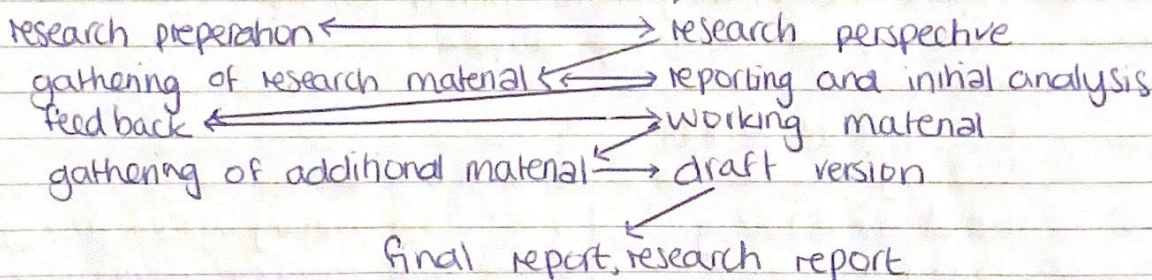 research preperation research perspective
gathering of research material reporting and initial analysis
feedback working material
gathering of additional material draft version
final report, research report